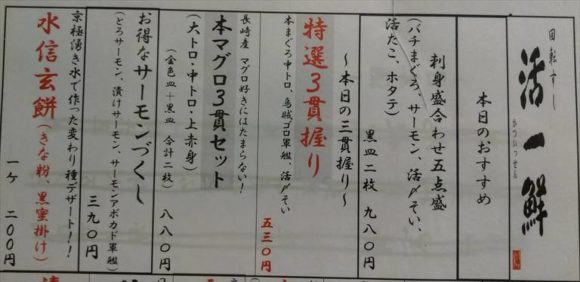 回転すし
活一鮮
かついっせん
本日のおすすめ
刺身盛合わせ五点盛
(バチまぐろ、サーモン、活〆そい、
活たこ、ホタテ)
黒皿二枚 九八〇円
〜本日の三貫握り〜
特選3貫握り
本まぐろ中トロ、烏賊ゴロ軍艦、活〆そい
五三〇円
長崎産 マグロ好きにはたまらない!
本マグロ3貫セット
(大トロ・中トロ・上赤身)
(金色皿+黒皿 合計二枚) 八八〇円
お得なサーモンづくし
(とろサーモン、漬けサーモン、サーモンアボカド軍艦)
三九〇円
京極湧き水で作った変わり種デザート!!
水信玄餅(きな粉、黒蜜掛け)
一ケ 二〇〇円